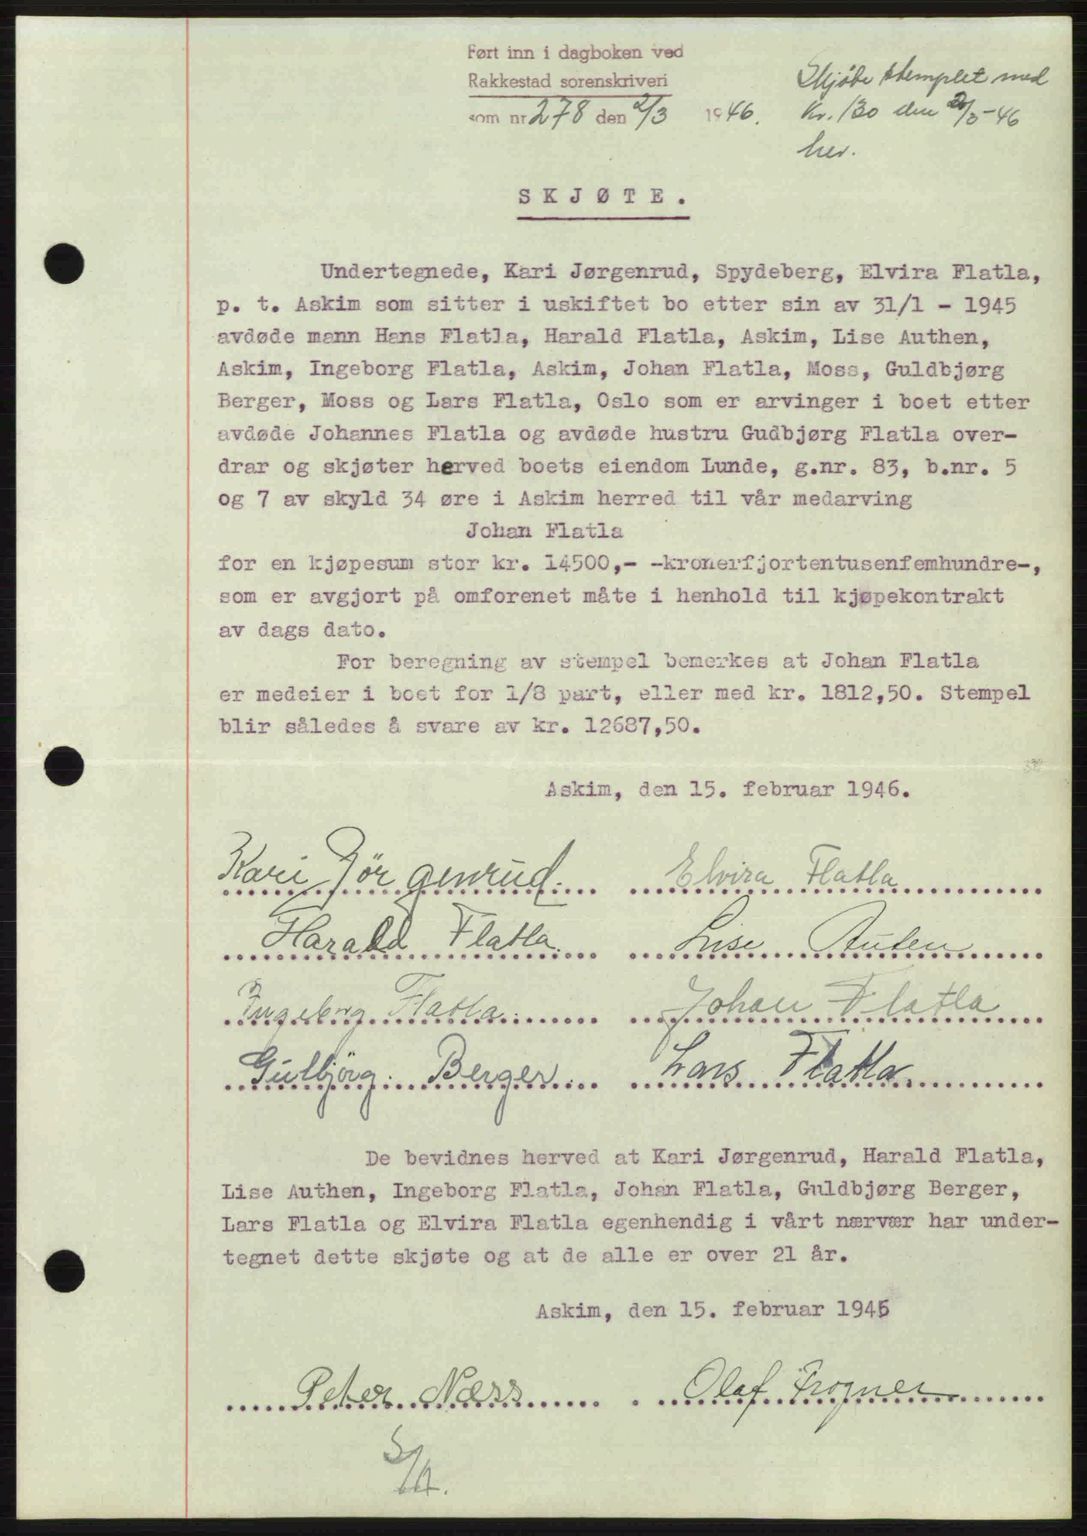 Ført inn i dagboken ved
Rakkestad sorenskriveri
som nr 278 den 2/3 1946.
Skjøte stemplet med
Kr. 130 den 2/3-46
her.
SKJØTE.
Undertegnede, Kari Jørgenrud, Spydeberg, Elvira Flatla,
p. t. Askim som sitter i uskiftet bo etter sin av 31/1 - 1945
avdøde mann Hans Flatla, Harald Flatla, Askim, Lise Authen,
Askim, Ingeborg Flatla, Askim, Johan Flatla, Moss, Guldbjørg
Berger, Moss og Lars Flatla, Oslo som er arvinger i boet etter
avdøde Johannes Flatla og avdøde hustru Gudbjørg Flatla over-
drar og skjøter herved boets eiendom Lunde, g.nr. 83, b.nr. 5
og 7 av skyld 34 øre i Askim herred til vår medarving
Johan Flatla
for en kjøpesum stor kr. 14500,- -kronerfjortentusenfemhundre-,
som er avgjort på omforenet måte i henhold til kjøpekontrakt
av dags dato.
For beregning av stempel bemerkes at Johan Flatla
er medeier i boet for 1/8 part, eller med kr. 1812,50. Stempel
blir således å svare av kr. 12687,50.
Askim, den 15. februar 1946.
Kari Jörgenrud. Elvira Flatla
Harald Flatla. Lise Auten
Ingeborg Flatla. Johan Flatla
Gulbjörg. Berger. Lars Flatla.
De bevidnes herved at Kari Jørgenrud, Harald Flatla,
Lise Authen, Ingeborg Flatla, Johan Flatla, Guldbjørg Berger,
Lars Flatla og Elvira Flatla egenhendig i vårt nærvær har under-
tegnet dette skjøte og at de alle er over 21 år.
Askim, den 15. februar 1946
Peter Næss Olaf Frogner